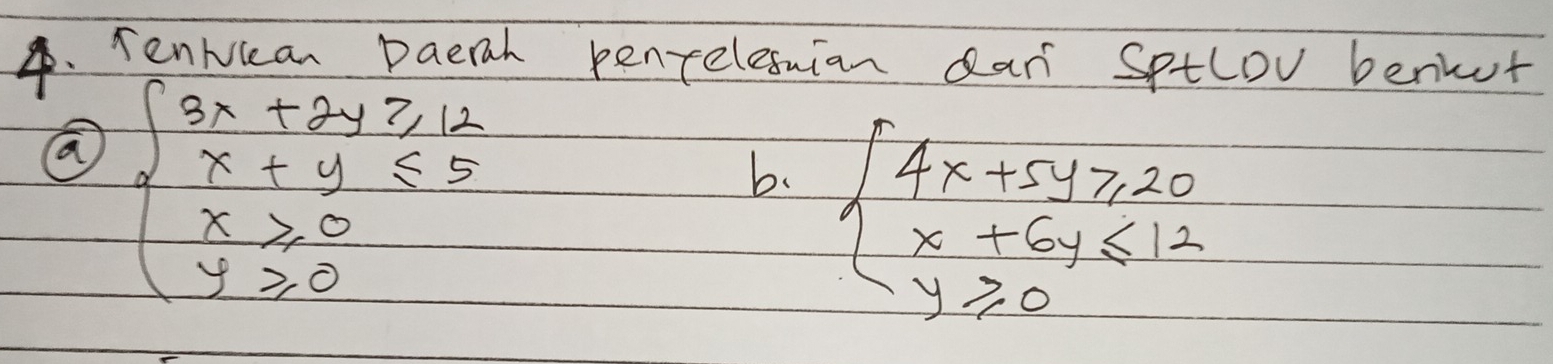 4. Tentukan Daerah penyelesaian dari SPtLDV berikut
a 3x + 2y ≥ 12
x + y ≤ 5
x ≥ 0
y ≥ 0
b. 4x + 5y ≥ 20
x + 6y ≤ 12
y ≥ 0